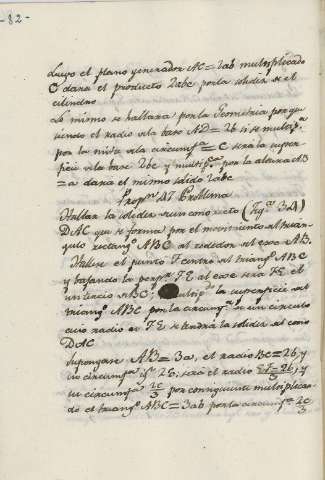 -82-
Luego el plano generador AC=2ab multiplicado
C dara el producto 2abc por la solidez de el
cilindro
Lo mismo se hallara por la Geometria porque
siendo el radio de la base AD=2b si se multip.ª
por la mitad de la circunf.ª = C será la super-
ficie de la base 2bc y multip.da por la altura AB
=a dara el mismo solido 2abc
Prop.n 47 Problema
Hallar la solidez de un cono recto (Fig.ª 34)
DAC que se forma por el movimiento del trian-
gulo rectang.º ABC al rededor del exe AB.
Hallese el punto F centro del triang.º ABC
y bajando la perp.r FE al exe será FE el
un tercio de BC; multip.do la superficie del
triang.º ABC por la circunf.ª de un circulo
cuio radio es FE se tendrá la solidez del cono
DAC
Supongase AB=3a, el radio BC=2b, y
su circunf.ª 2c, será el radio EF=2b/3, y
su circunf.ª 2c/3 por consiguiente multiplican-
do el triang.º ABC=3ab por la circunf.ª 2c/3